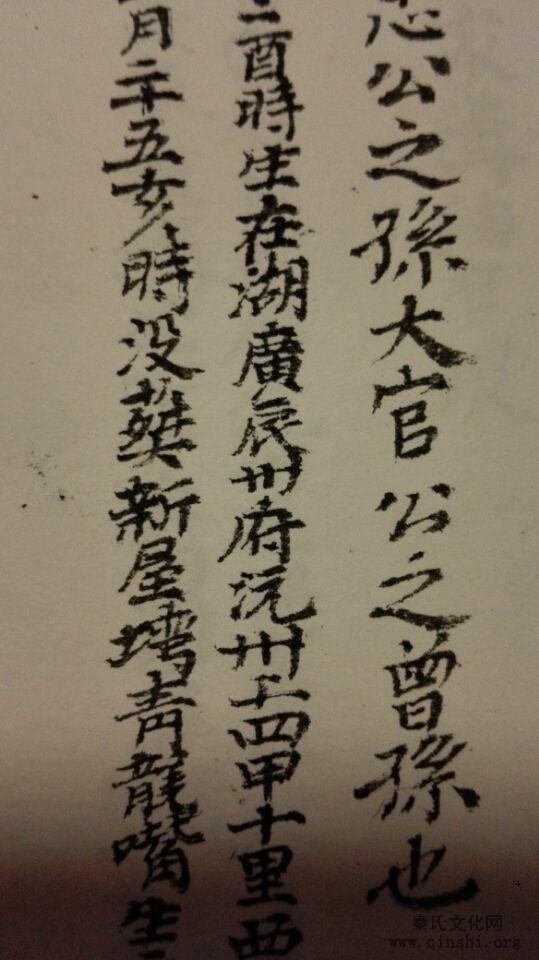 忠公之孫大官公之曾孫也
二酉時生在湖廣辰州府沅州上四甲十里西
月二十五亥時没葬新屋塆青龍嘴生
秦氏文化网
www.qinshi.org